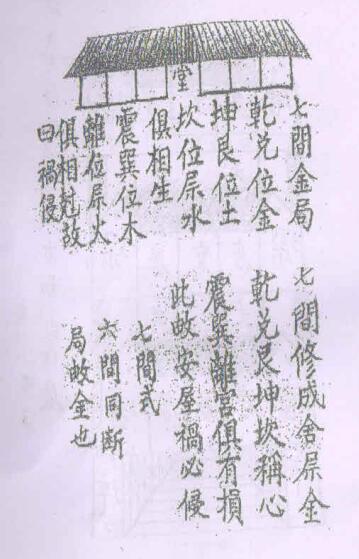 堂
七間金局
乾兑位金
坤艮位土
坎位屌水
俱相生
震巽位木
離位屌火
俱相尅故
曰禍侵
七間修成舍屌金
乾兑艮坤坎稱心
震巽離宮俱有損
此畞安屋禍必侵
七間式
六間同断
局畞金也